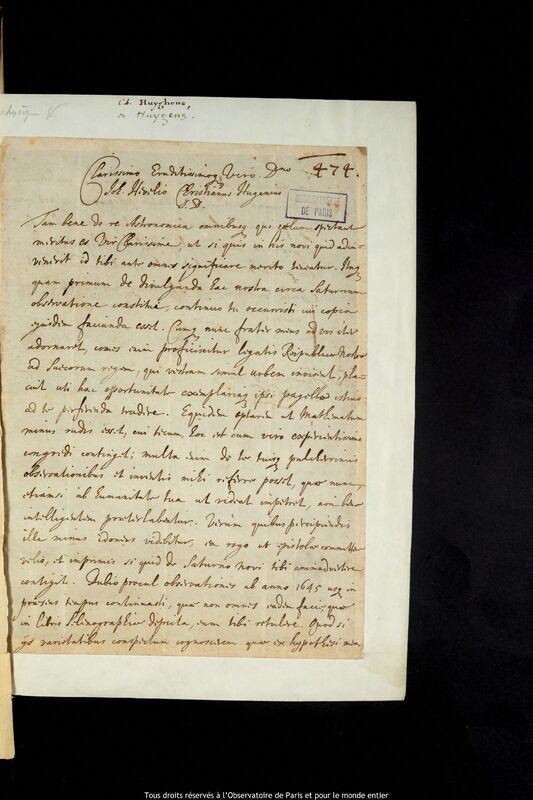 Ch. Huyghens,
a Huygens.
474.
Clarissimo Eruditissimoq Viro Dno
Joh. Hevelio Christianus Hugenius
S.D.
OBSERVATOIRE
DE PARIS
Tam bene de re Astronomica omnibusq qui cœlum spectant
meritus es Vir Clarissime, ut si quis in his novi quid adin-
venerit id tibi ante omnes significare merito teneatur. Itaq
quam primum de divulganda hac nostra circa Saturnum
observatione constitui, continuo tu occurristi cui copia
ejusdem facienda esset. Cumq nunc frater meus ad vos iter
adornaret, comes enim proficiscitur legatis Reipublicæ Nostræ
ad Suecorum regem, qui vestram simul urbem invisent, pla-
cuit uti hac opportunitate exemplariaq ipsi pagellæ istius
ad te perferenda tradere. Equidem optarem ut Mathematum
minus rudis esset, cui tecum, hoc est cum viro experientissimo
congredi contingeret; multa enim de te tuisq pulcherrimis
observationibus et inventis mihi referre posset, quæ nunc,
etiamsi ab humanitate tua ut videat impetret, non bene
intelligentem præterlabentur. Verùm quibus percipiendis
ille minus idoneus videbitur, ea rogo ut epistolæ committere
velis, et inprimis si quid de Saturno novi tibi animadvertere
contigit. Dubio procul observationes ab anno 1645 usq in
præsens tempus continuasti, quæ non omnes easdem facies quæ
in libro Selenographiæ depictæ, eum tibi retulere. Quod si
ijs varietatibus conspectum cognoscerem quæ ex hypothesi mea
Tous droits réservés à l'Observatoire de Paris et pour le monde entier